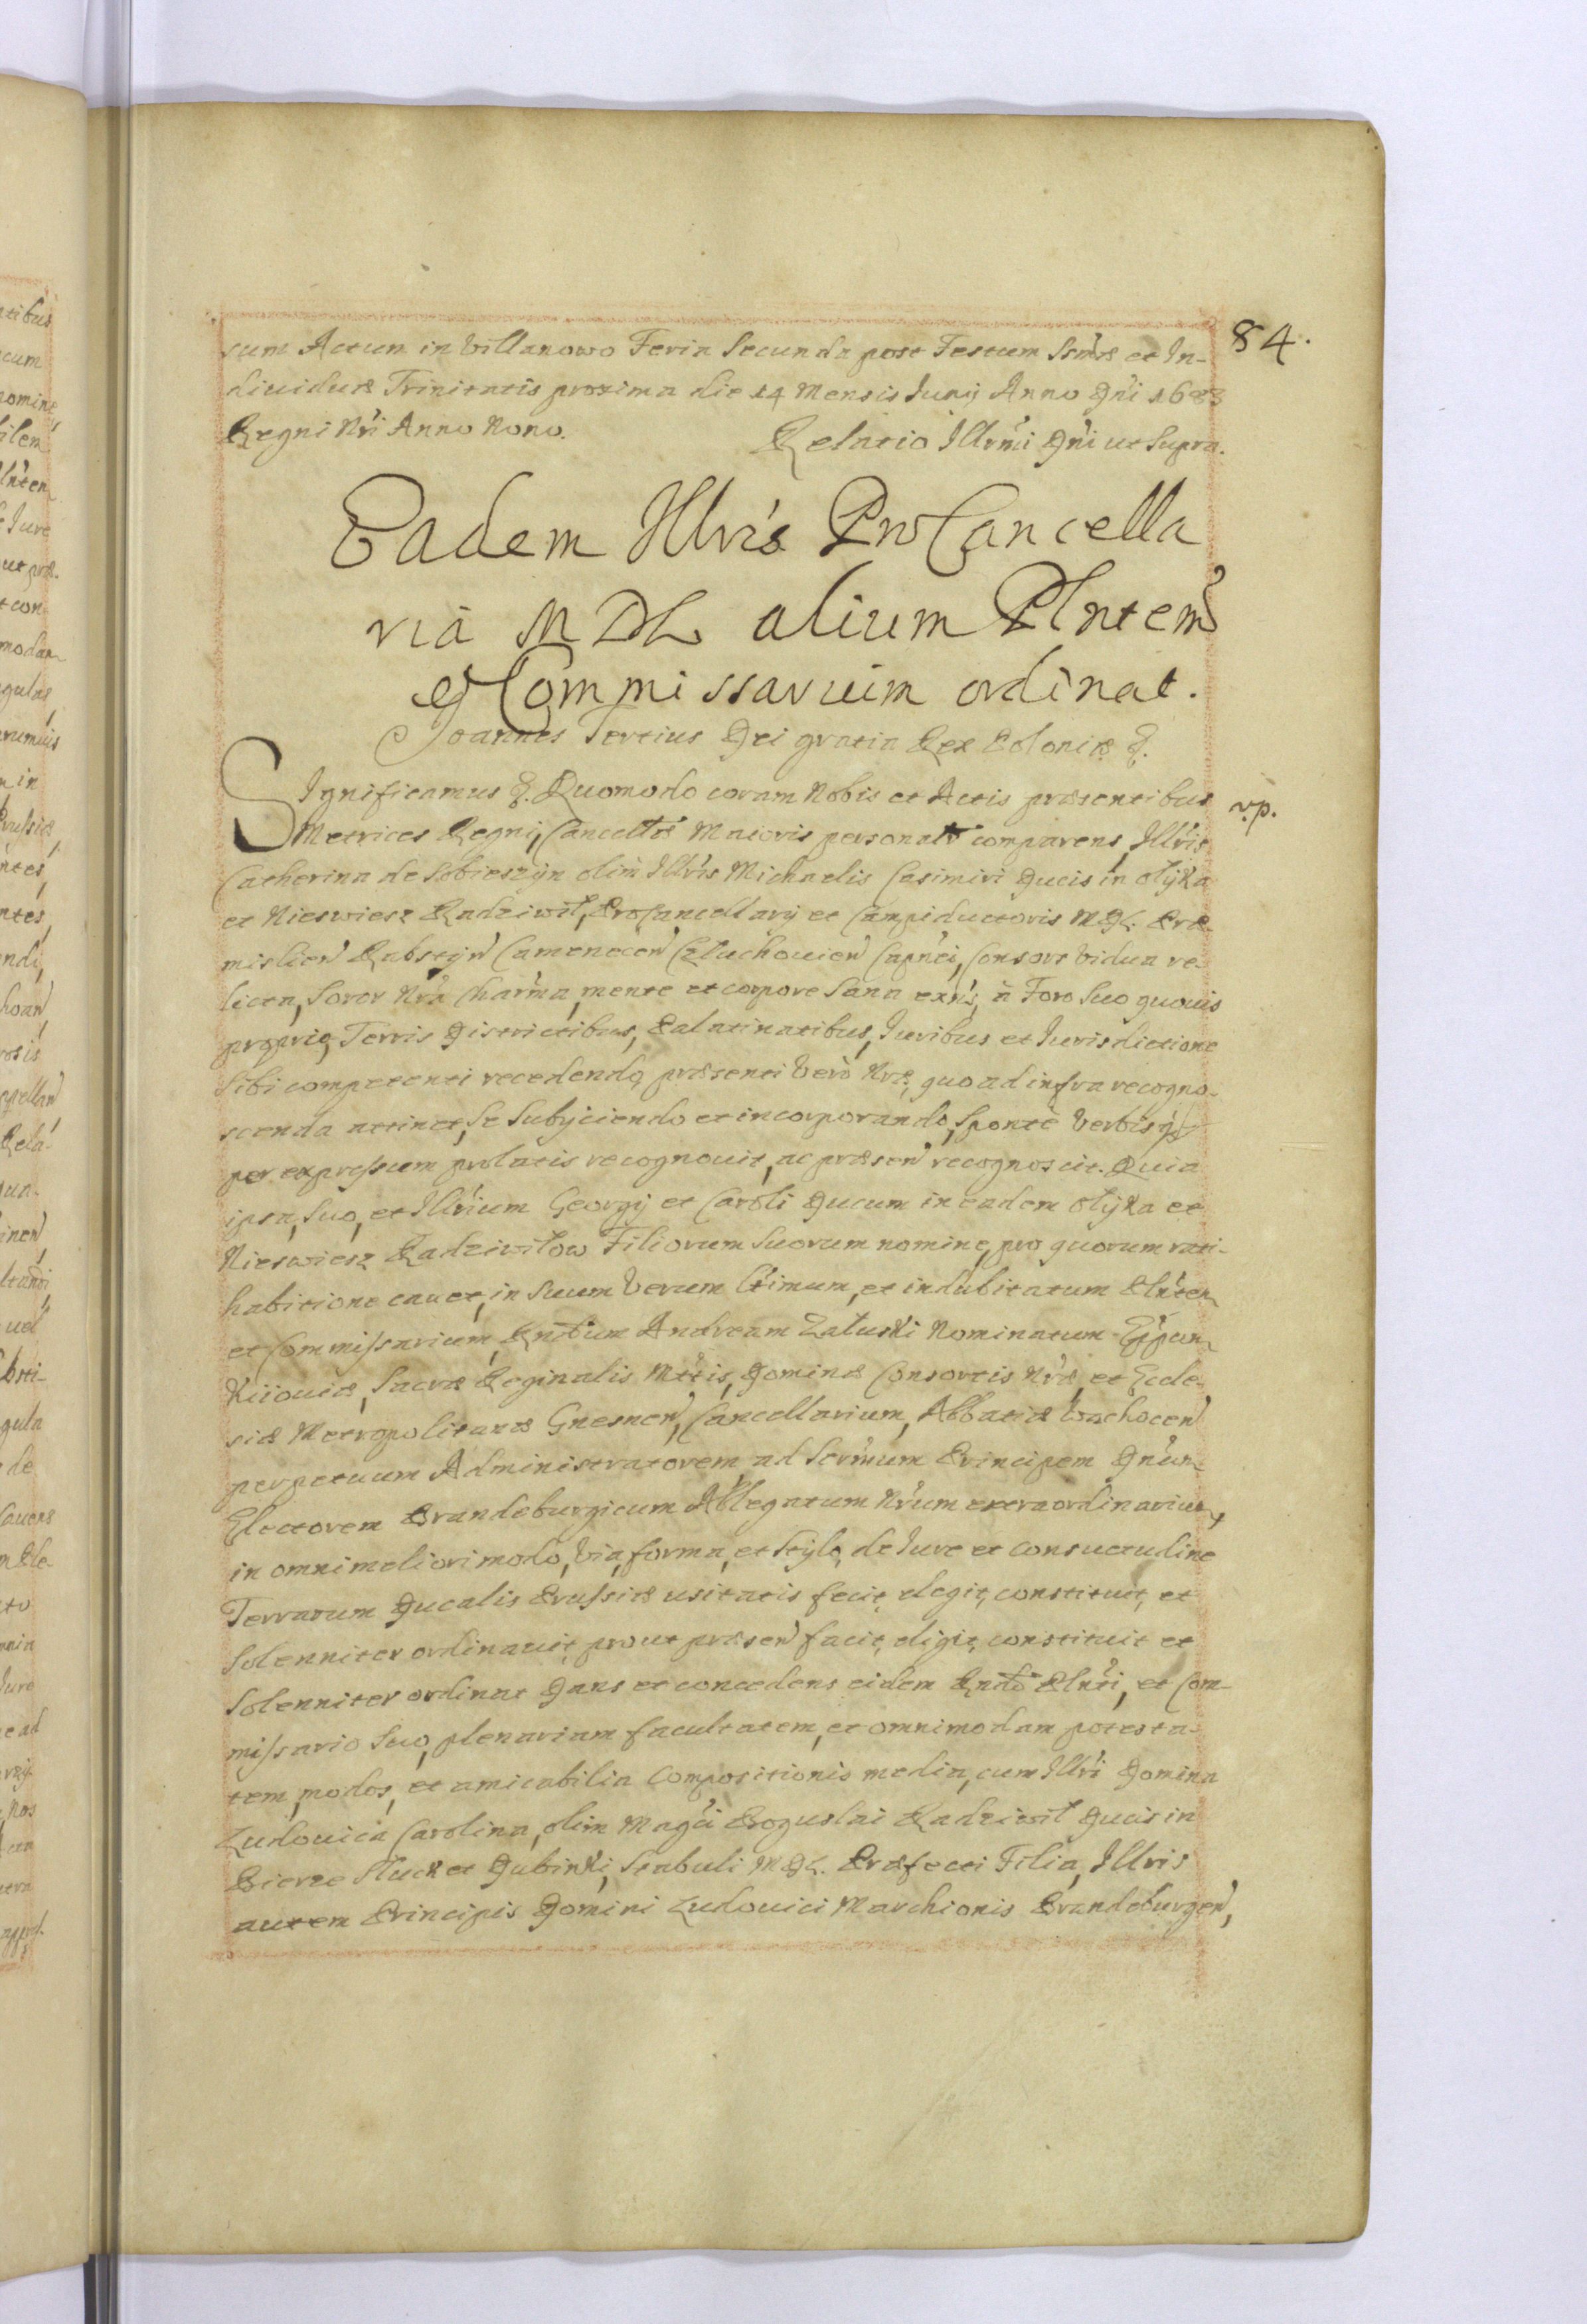 84.
sum Actum in Villanowo Feria Secunda post Festum Ssmæ et In-
diuiduæ Trinitatis proxima die 14 Mensis Iunij Anno Dni 1683
Regni Nri Anno Nono. Relatio Illrmi Dni ut Supra.
Eadem Illris ProCancella
ria MDL alium Plntem
et Commissarium ordinat.
Joannes Tertius Dei gratia Rex Poloniæ &.
Significamus &. Quomodo coram Nobis et Actis præsentibus
v.p.
Metrices Regni, Cancellæ Maioris personalr comparens, Illris
Catherina de Sobieszyn olim Illris Michaelis Casimiri Ducis in Olyka
et Nieswiesz Radziwił, ProCancellarij et Campiductoris MDL. Præ-
mislien Rabstyn Camenecen Człuchouien Capnei, Consors Vidua re-
licta, Soror Nra Charma, mente et corpore Sana exns, à Foro Suo quouis
proprio, Terris Districtibus, Palatinatibus, Iuribus et Iurisdictione
Sibi competenti recedendo, præsenti Verò Nræ, quo ad infra recogno-
scenda attinet, Se Subijciendo et incorporando, Sponte Verbisq
per expressum prolatis recognouit, ac præsen recognoscit. Quia
ipsa, Suo, et Illrium Georgij et Caroli Ducum in eadem Olyka et
Nieswiesz Radziwiłow Filiorum Suorum nomine, pro quorum rati-
habitione cauet, in Suum Verum Ltimum, et indubitatum Plnten
et Commissarium, Rndum Andream Załuski Nominatum Eppum
Kiiouiæ, Sacræ Reginalis Mttis, Dominæ Consortis Nræ, et Eccle-
siæ Metropolitanæ Gnesnen, Cancellarium, Abbatiæ Wachocen
perpetuum Administratorem, ad Sermum Principem Dnum
Electorem Brandeburgicum Ablegatum Nrum extraordinarium,
in omni meliori modo, Via, forma, et Stylo, de Iure et consuetudine
Terrarum Ducalis Prussiæ usitatis fecit, elegit, constituit, et
Solenniter ordinauit, prout præsen facit, eligit, constituit et
Solenniter ordinat Dans et concedens eidem Rndo Plnti, et Com-
missario Suo, plenariam facultatem, et omnimodam potesta-
tem, modos, et amicabilia Compositionis media, cum Illri Domina
Ludouica Carolina, olim Magci Boguslai Radziwił Ducis in
Bierze Sluck et Dubinki, Stabuli MDL. Præfecti Filia, Illris
autem Principis Domini Ludouici Marchionis Brandeburgen,